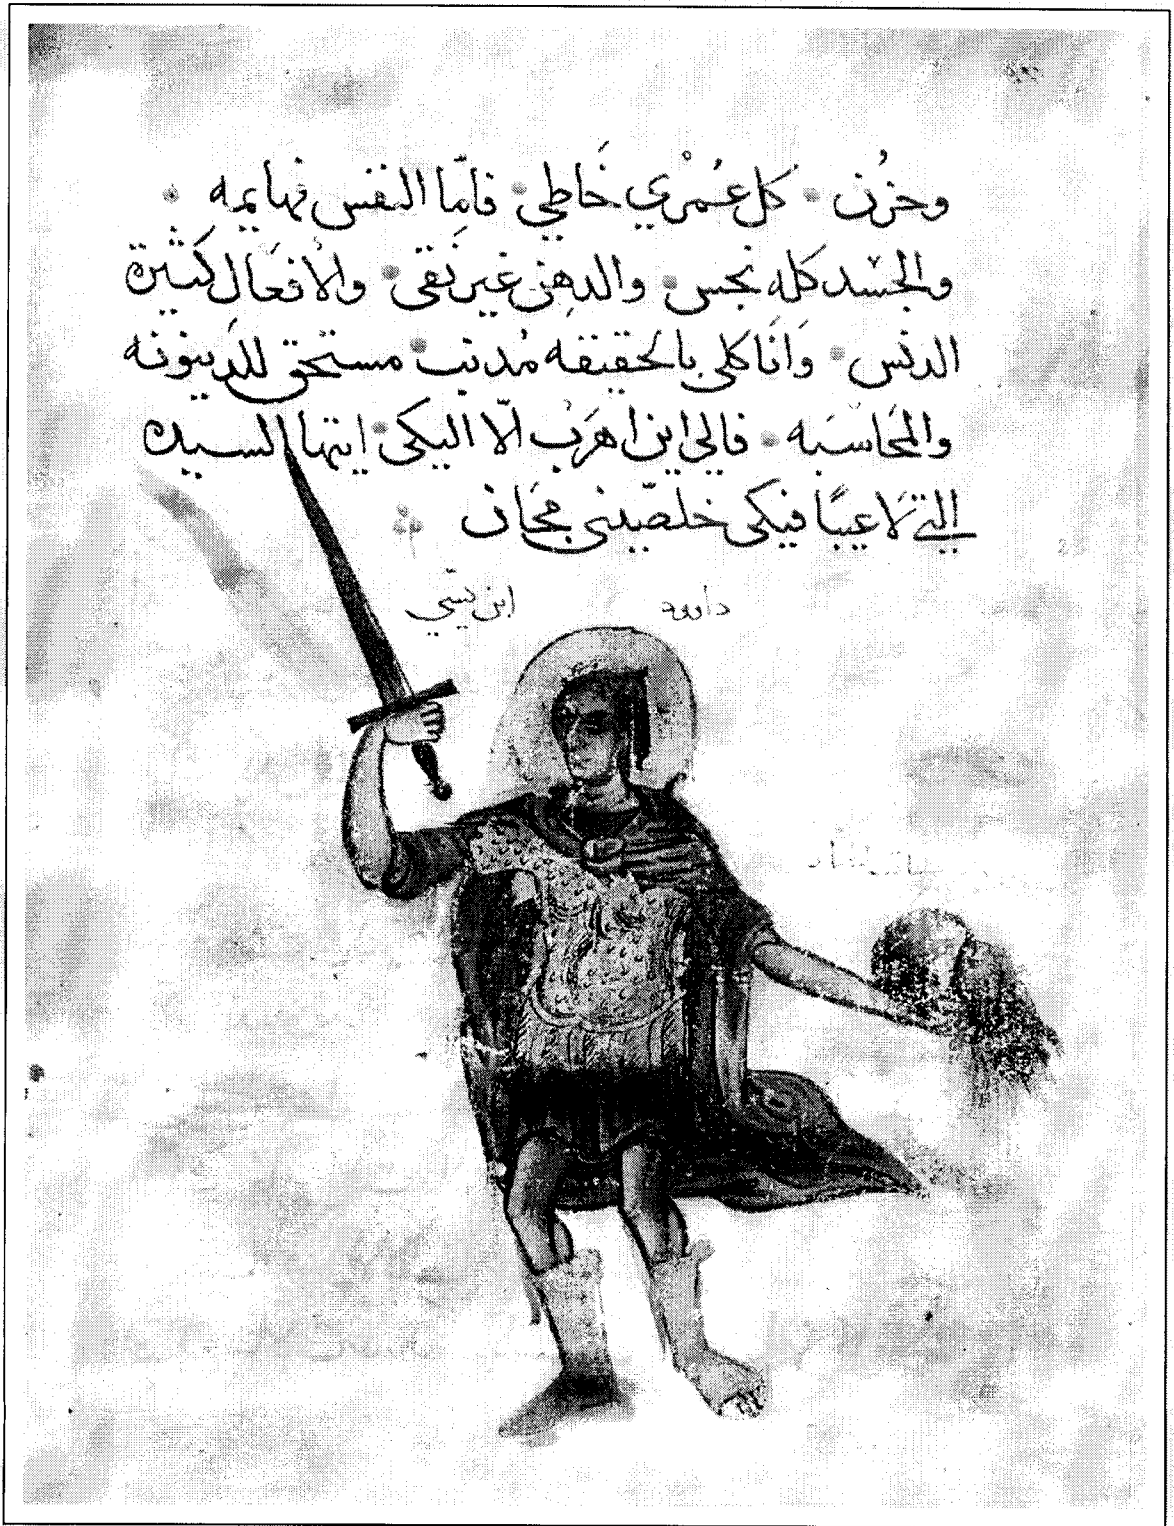 وحزُن ۰ كل عُمْري خَاطي ۰ فامّا النفس فهايمه ۰
والجسْد كله نجس ۰ والدهن غير نقى ۰ والأفعَال كثيرة
الدنس ۰ وَانَا كلى بالحقيقه مُدنب ۰ مستحق للدَينونه
والمحَاسَبه ۰ فالي اين اهرَب الّا اليكى ۰ ايتها السيده
التي لَا عيبًا فيكى خلصّينى مجَان
داوود
ابن يسّي